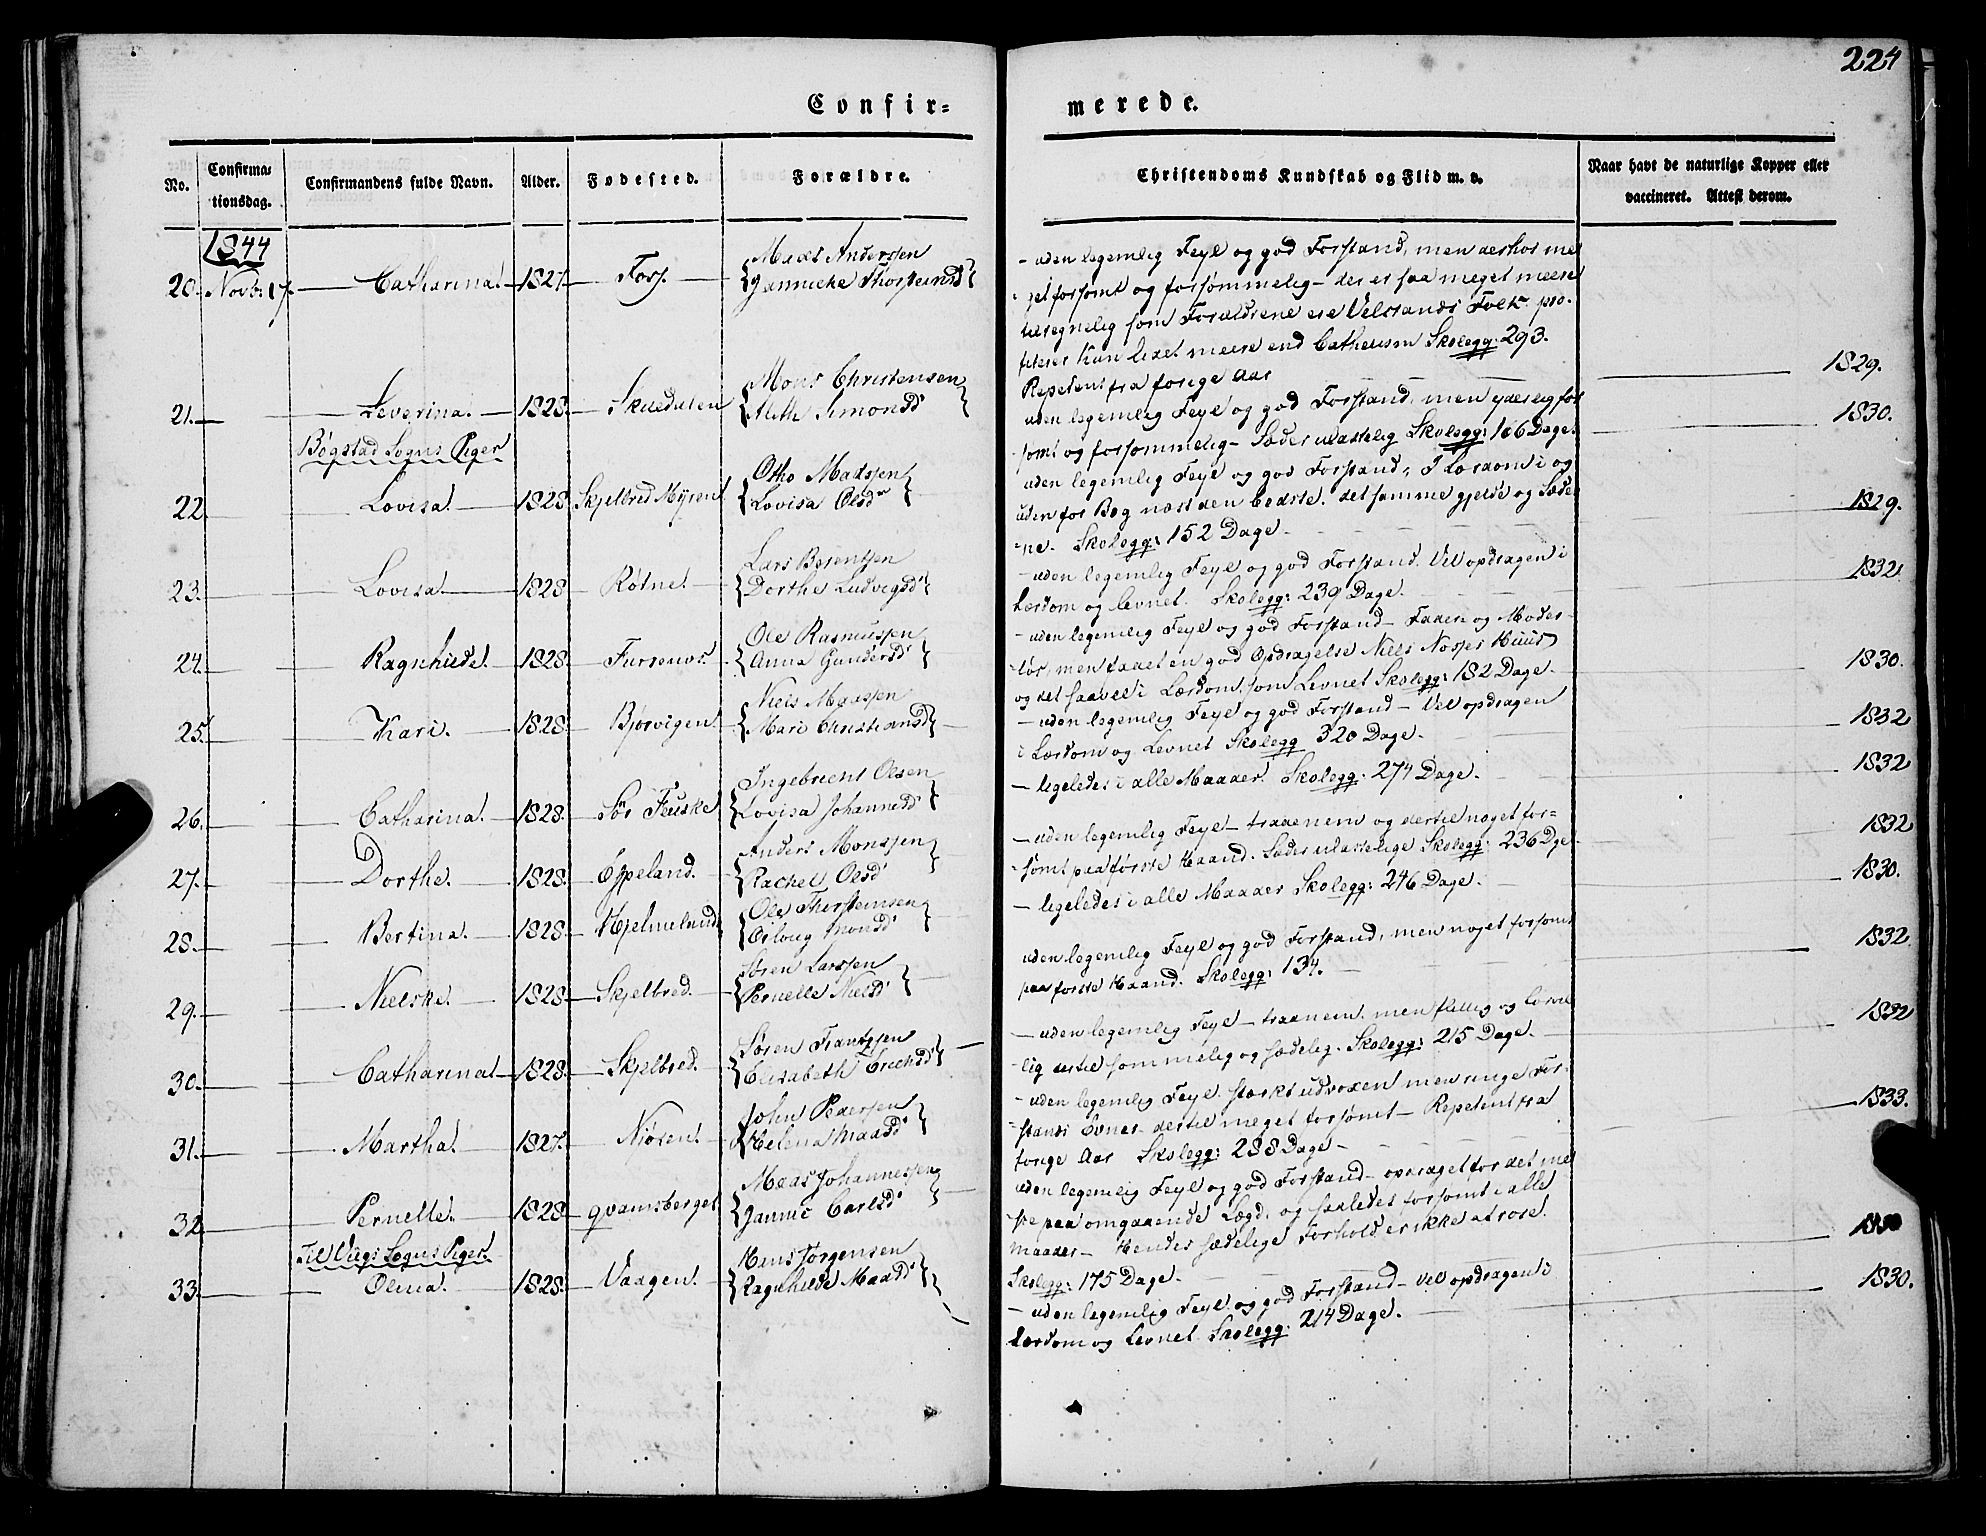 224
Confir=
merede.
No.
Confirma-
tionsdag.
Confirmandens fulde Navn.
Alder.
Fødested.
Forældre.
Christendoms Kundskab og Flid m. v.
Naar havt de naturlige Kopper eller
vaccineret. Attest derom.
1844
20. Novb: 17. Catharina. 1827. Fors.
Mads Andersen
Jannicke Thorsteinsd
- uden legemlig Feyl og god Forstand, men derhos me
get forsømt og forsømmelig - der er saa meget meere
tilregnelig som Forældrene ere Velstands Folk
Skolegg: 293.
Repetent fra forige Aar
1829.
21. Severina. 1828.
Mons Christensen
Simonsd
uden legemlig Feyl og god Forstand, men yderlig for
sømt og forsømmelig - Sæder ulastelig Skolegg: 106 Dage.
1830.
Bøgstad Sogns Piger
22. Lovisa. 1828. Skjelbred Myren
Otho Madssen
Lovisa Olsd
uden legemlig Feyl og god Forstand, I Lærdom i og
uden for Bog næst den bedste. det samme gjelde og Sæder
ne. Skolegg: 152 Dage.
1829.
23. Lovisa. 1828 Rötne.
Lars Berentsen
Dorthe Ludvigsd
- uden legemlig Feyl og god Forstand. Vel opdragen i
Lærdom og levnet. Skolegg: 239 Dage.
1832
24. Ragnhilde. 1828.
Ole Rasmussen
Anna Gundersd
- uden legemlig Feyl og god Forstand - Fader og Moder-
løs, men faaet en god Opdragelse Niels Huus
og det saavel i Lærdom som Levnet Skolegg: 182 Dage.
1830.
25. Kari. 1828. Bjørvigen.
Niels Madssen
Mari Christiansd
- uden legemlig Feyl og god Forstand - Vel opdragen
i Lærdom og Levnet Skolegg 320 Dage.
1832
26. Catharina. 1828. Sör
Ingebrient Olsen
Lovisa Johannesd
- legeledes i alle Maader. Skolegg: 274 Dage.
1832
27. Dorthe. 1828. Eppeland.
Anders Monssen
Rachel Olsd
- uden legemlig Feyl - træenem og dertil noget for-
sömt paa første Haand. Sæder ulastelige Skolegg: 236 Dge.
1832
28. Bertina. 1828. Hjelmeland
Ole Thorsteinsen
Monsd
- legeledes i alle Maader Skolegg: 246 Dage.
1830.
29. Nielske. 1828. Skjelbred.
Sören Larssen
Pernelle Nielsd
uden legemlig Feyl og god Forstand, men noget forsømt
paa første Haand. Skolegg: 134.
1832
30. Catharina. 1828. Skjelbred.
Sören Frantzsen
Elisabeth Erichsd
- uden legemlig Feyl - træenem. men flittig og lærve
lig dertil sømmelig og sædelig. Skolegg: 215 Dage.
1832
31. Martha. 1827. Njösen.
John Pedersen
Helena Madsd
- uden legemlig Feyl. stærkt udvoxen men ringe For-
stands Evner dertil meget forsømt - Repetent fra
forige Aar Skolegg: 288 Dage -
1833.
32 Pernelle. 1828. Qvamsberget
Mads Johannessen
Jannic Carlsd
uden legemlig Feyl og god Forstand - opdraget for det me
ste paa omgaaende Lægd, og saaledes forsømt i alle
Maader - Hendes sædelige Forhold er ikke at rose.
Skolegg: 175 Dage.
Til Sogns Piger.
33. Olina. 1828. Vaagen.
Hans Jörgensen
Ragnhilde Madsd
- uden legemlig Feyl og god Forstand - vel opdragen i
Lærdom og Levnet Skolegg: 214 Dage.
1830.